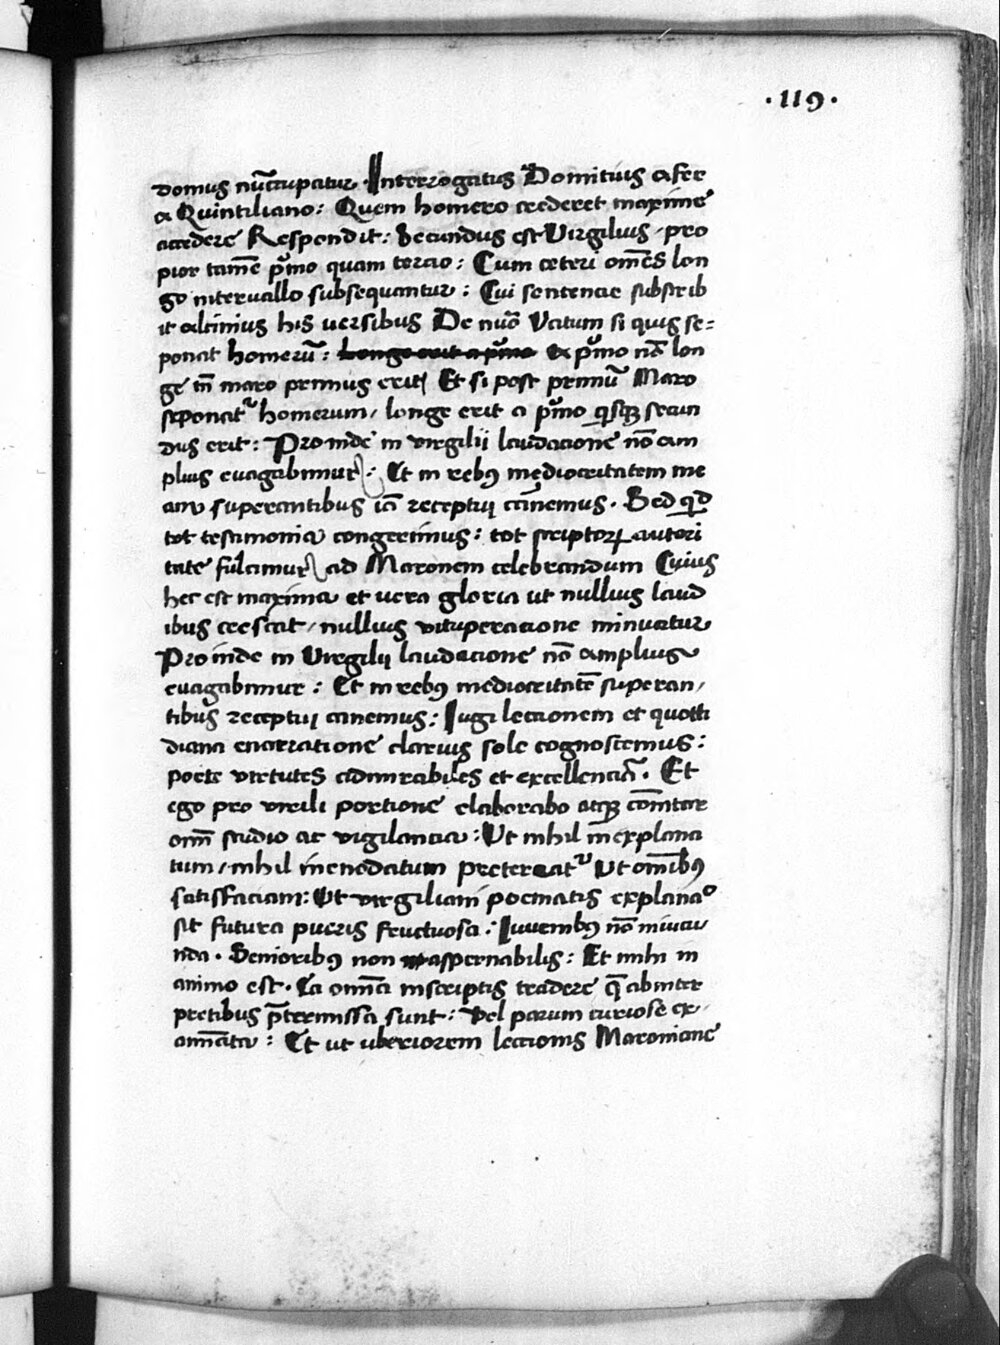 ·119·
domus nūcrupatur · Interrogatus Domitius afer
a Quintiliano : Quem homero crederet maxime
accedere Respondit : Secundus est Virgilius / pro
pior tamē pͥmo quam tercio : Cum ceteri om̄es lon
go interuallo subsequantur : Cui sentencie subscrib
it alcinius his uersibus De nūo Vatum si quis se=
ponat homerū : longe erit a pͥmo Ex pͥmo nō lon
ge tn̄ maro primus erit Et si post primū Maro
seponatᷣ homerum / longe erit a pͥmo qͥsqꝫ secun
dus erit : Proinde in virgilii laudacione nō am
plius euagabimur : Et in rebꝰ mediocritatem me
am superantibus iā receptui canemus · Sed qͥd
tot testimonia congerimus : tot scriptoꝝ autori
tate fulcimur ad Maronem celebrandum Cuius
hec est maxima et uera gloria ut nullius laud
ibus crescat / nullius vituperacione minuatur
Proinde in Virgilii laudacione nō amplius
euagabimur : Et in rebꝰ mediocritatē superan/
tibus receptui canemus : Iugi lectionem et quotti
diana enarratione clarius sole cognoscemus :
poete virtutes admirabiles et excellencia · Et
ego pro virili portione elaborabo atqꝫ cōnitar
om̄i studio ac vigilancia : Ut nihil inexplana
tum / nihil inenodatum pretereatᷣ Ut om̄ibꝰ
satisfaciam : Ut virgiliani poematis explanaͦ
sit futura pueris fructuosa : Iuuenibꝰ nō iniucu
nda · Senioribꝰ non aspernabilis : Et mihi in
animo est · Ea omīa inscriptis tradere q̄ ab inter
pretibus p̄termissa sunt : Vel parum curiose ex/
aminata : Et ut uberiorem lectionis Maroniane